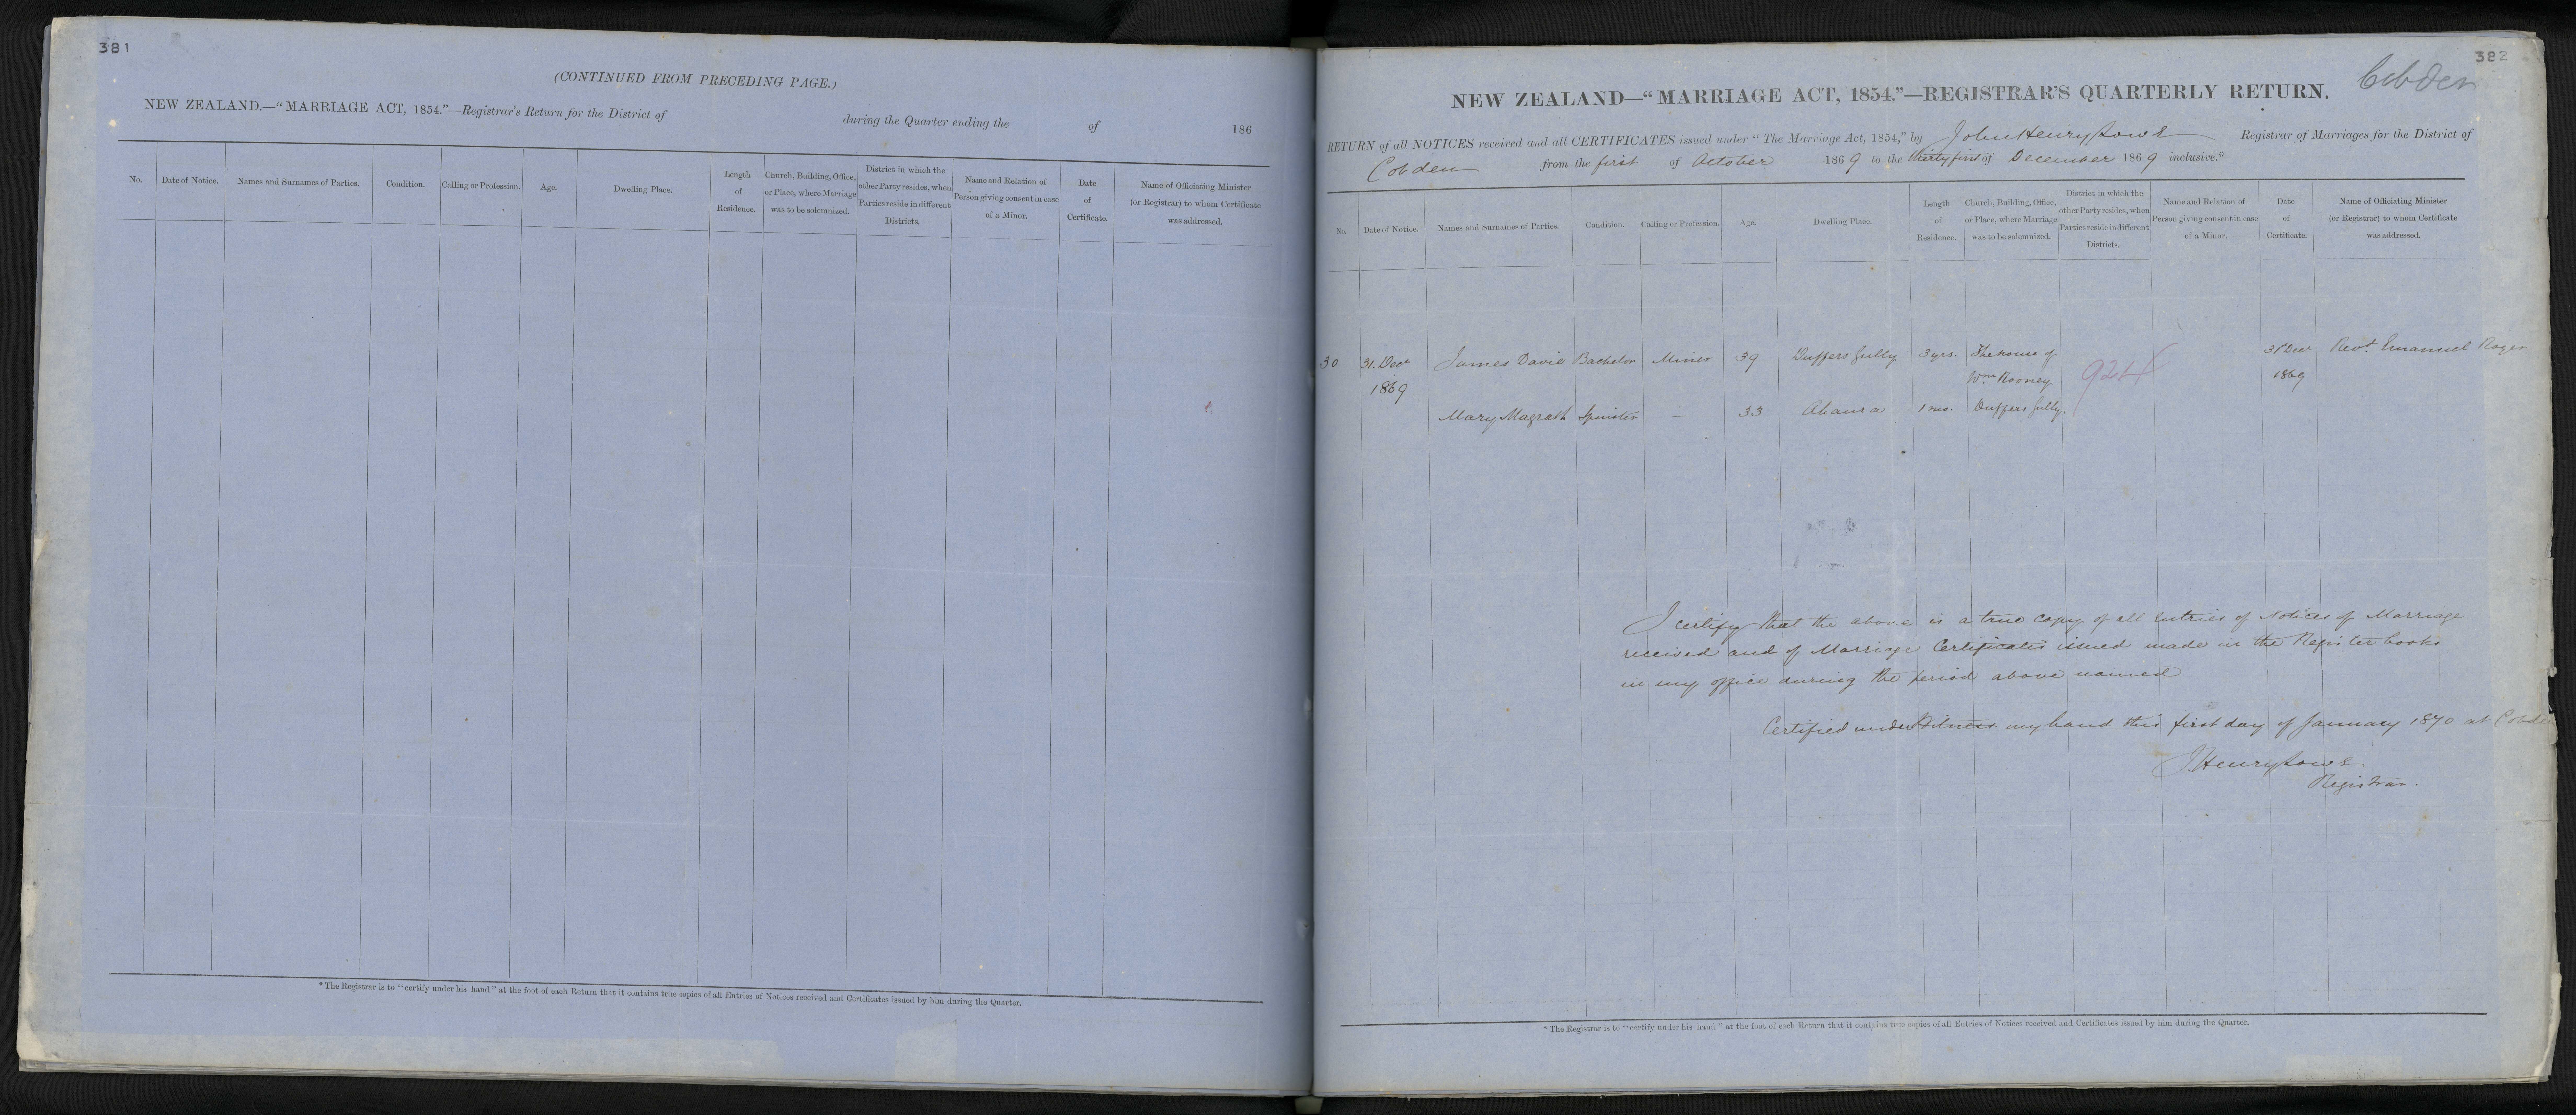 381
(CONTINUED FROM PRECEDING PAGE.)
NEW ZEALAND.—"MARRIAGE ACT, 1854."—Registrar's Return for the District of during the Quarter ending the of 186
No. Date of Notice. Names and Surnames of Parties. Condition. Calling or Profession. Age. Dwelling Place. Length of Residence. Church, Building, Office, or Place, where Marriage was to be solemnized. District in which the other Party resides, when Parties reside in different Districts. Name and Relation of Person giving consent in case of a Minor. Date of Certificate. Name of Officiating Minister (or Registrar) to whom Certificate was addressed.
*The Registrar is to "certify under his hand" at the foot of each Return that it contains true copies of all Entries of Notices received and Certificates issued by him during the Quarter.
382
Cobden
NEW ZEALAND—"MARRIAGE ACT, 1854,"—REGISTRAR'S QUARTERLY RETURN.
RETURN of all NOTICES received and all CERTIFICATES issued under "The Marriage Act, 1854," by John Henry Registrar of Marriages for the District of
Cobden from the first of October 1869 to the thirty first of December 1869 inclusive.*
No. Date of Notice. Names and Surnames of Parties. Condition. Calling or Profession. Age. Dwelling Place. Length of Residence. Church, Building, Office, or Place, where Marriage was to be solemnized. District in which the other Party resides, when Parties reside in different Districts. Name and Relation of Person giving consent in case of a Minor. Date of Certificate. Name of Officiating Minister (or Registrar) to whom Certificate was addressed.
30 31. Decr James David Bachelor Miner 39 Duffers Gully 3 yrs. The house of 31 Decr Revd. Emanuel
1869 Wm Rooney 924 1869
Mary Magrath Spinster — 33 Ahaura 1 mo. Duffers Gully
I certify that the above is a true copy of all Entries of Notices of Marriage
received and of Marriage Certificates issued made in the Register books
in my office during the period above named
Certified under Witness my hand this first day of January 1870 at Cobden
J Henry
Registrar.
*The Registrar is to "certify under his hand" at the foot of each Return that it contains true copies of all Entries of Notices received and Certificates issued by him during the Quarter.